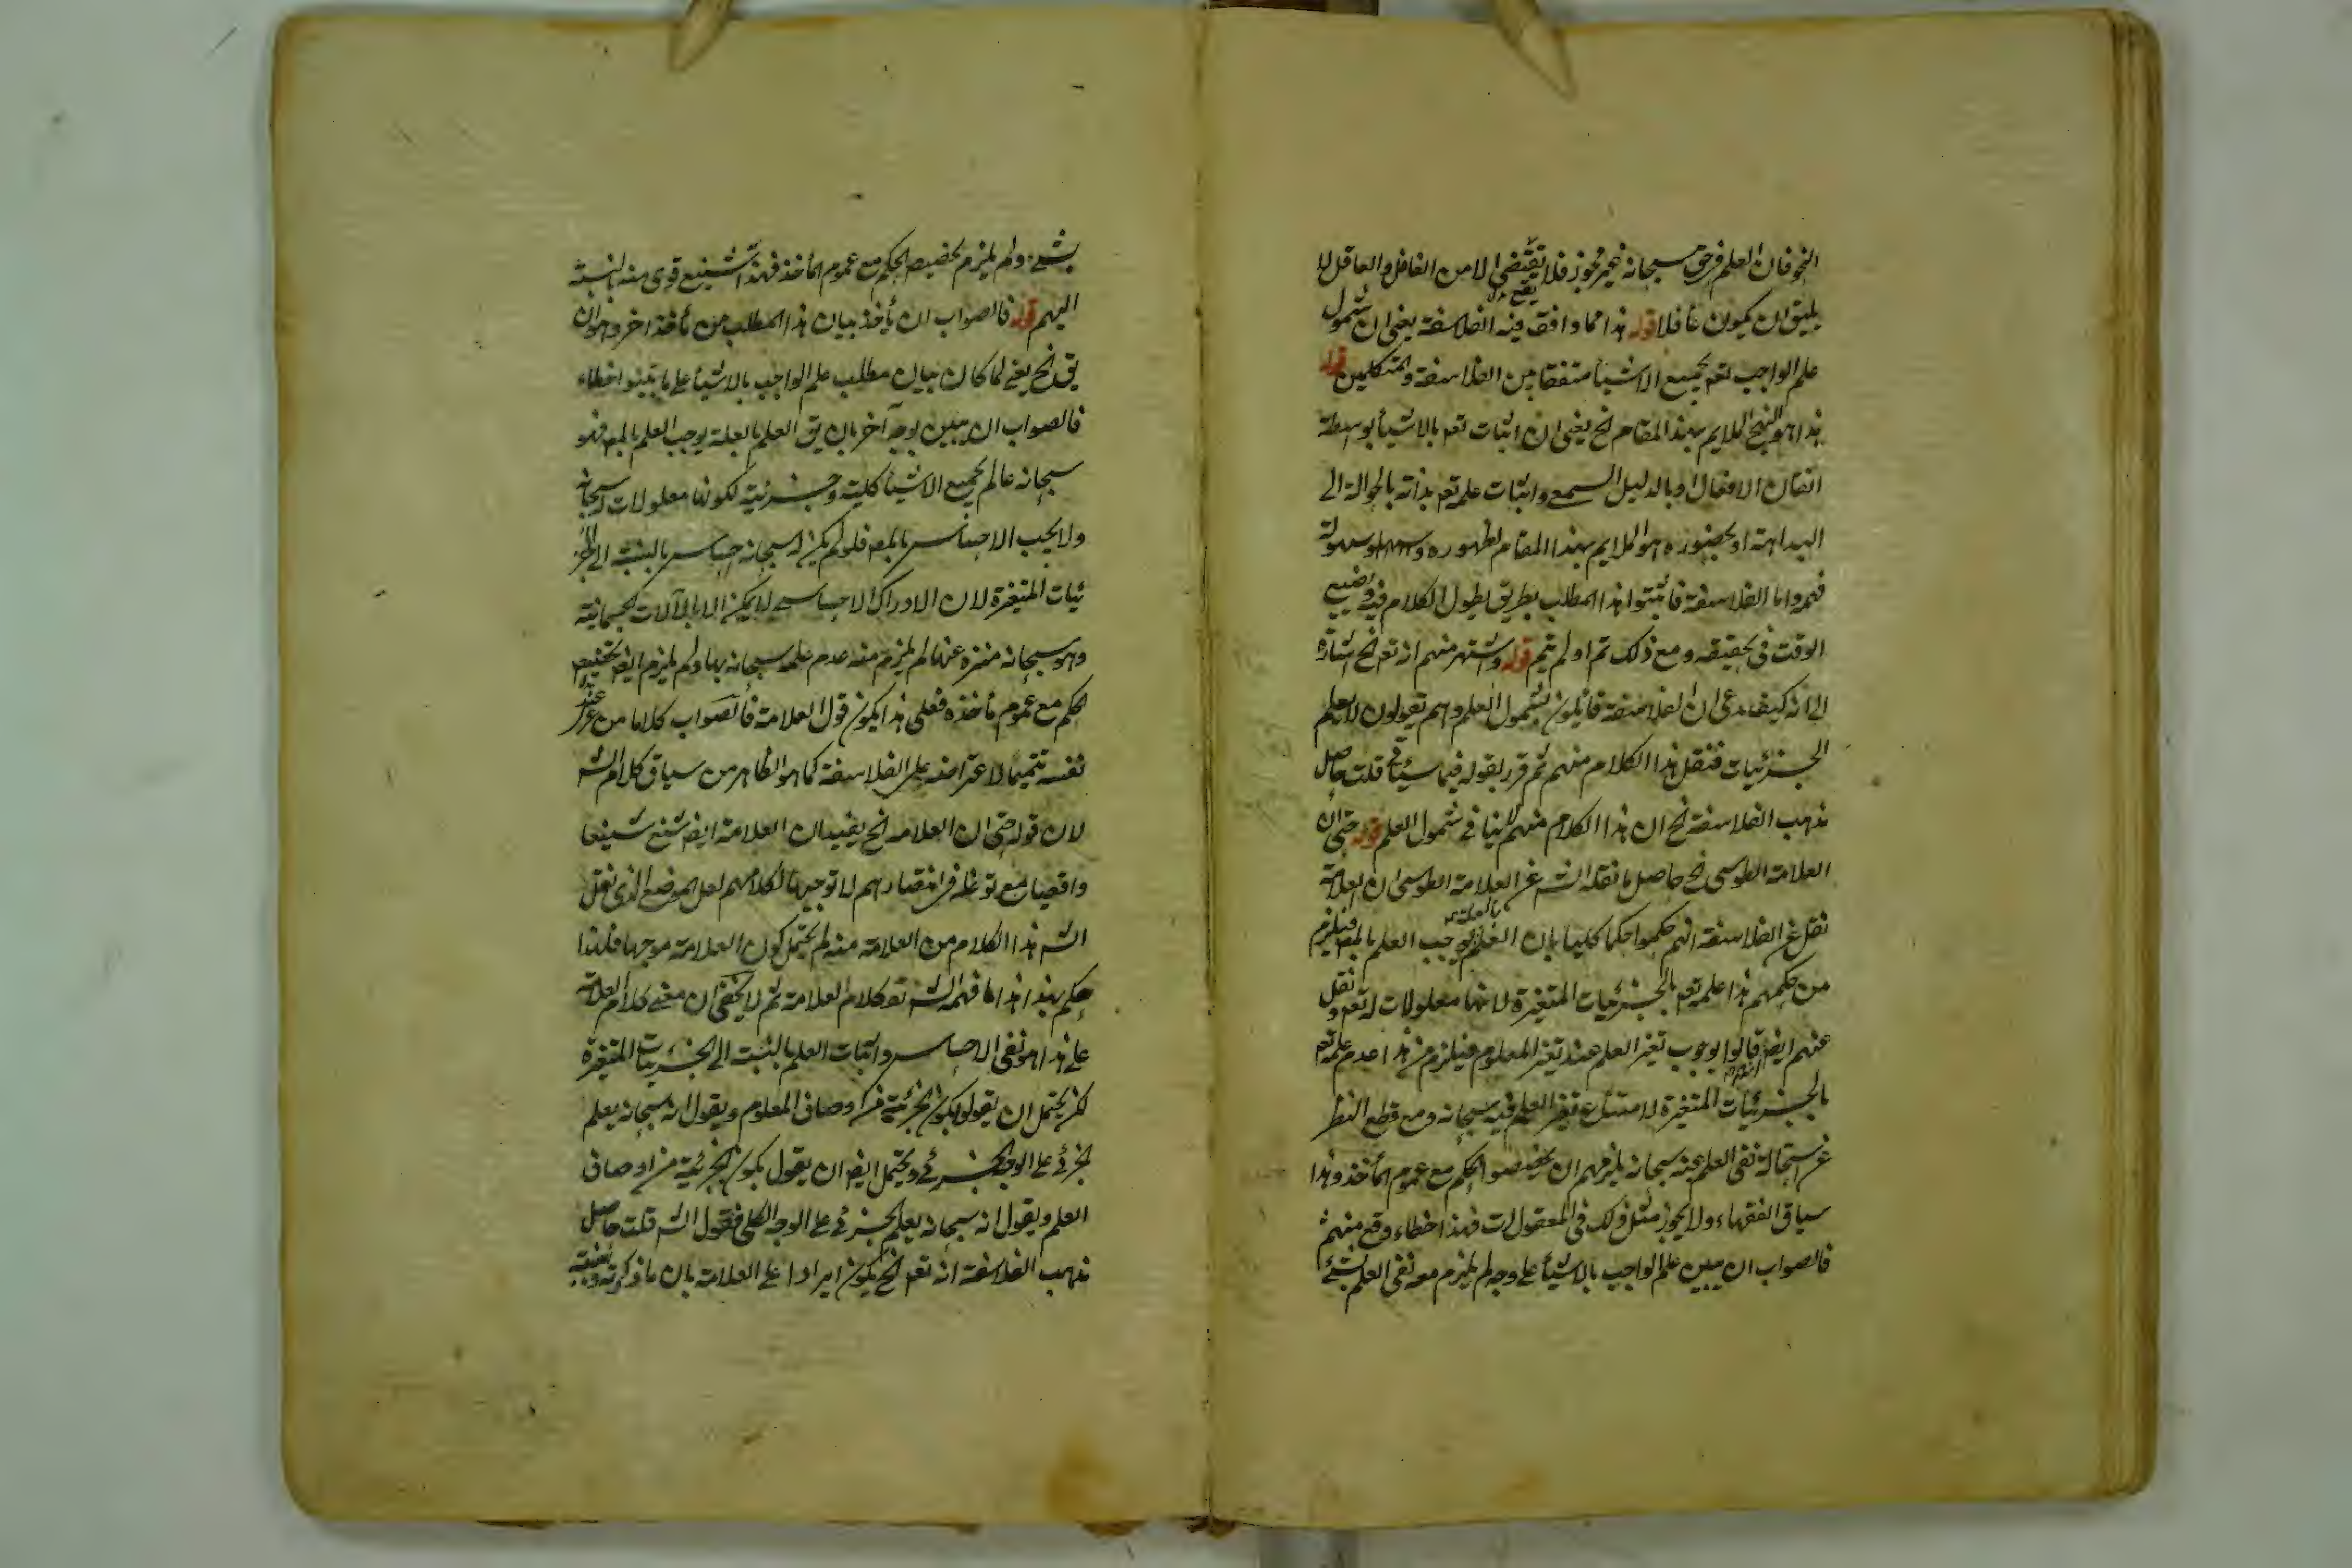 النحو فان العلم فى حق سبحانه غير مجوز فلا يقتضى الا من الغافل والعاقل لا
يليق ان يكون غافلا قوله هذا مما وافق فيه الفلاسفة يعنى ان شمول
علم الواجب تعم بجميع الاشيأ متفقا بين الفلاسفة والمتكلمين قوله
هذا هو النهج الملايم بهذا المقام الخ يعنى ان اثبات تعم بالاشيأ بوسطة
اتقان الافعال او بالدليل السمعى واثبات علمه تعم بذاته بالحوالة الى
البداهة او بحضوره هو الملايم بهذا المقام لظهوره وسهولة
فهمه واما الفلاسفة فاثبتوا هذا المطلب بطريق يطول الكلام فيه ويضيع
الوقت فى تحقيقه ومع ذلك تم او لم يتم قوله واشتهر منهم انه تعم الخ اشارة
الى انه كيف يدعى ان الفلاسفة قائلون بشمول العلم وهم يقولون لا يعلم
الجزئيات فنقل هذا الكلام منهم ثم قرر بقوله فيما سيأتى قلت حاصل
مذهب الفلاسفة الخ ان هذا الكلام منهم لا ينافى شمول العلم قوله حتى ان
العلامة الطوسى الخ حاصل ما نقله الشه عن العلامة الطوسى ان العلامة
نقل عن الفلاسفة انهم حكموا حكما كليا بان العلم بالعلة يوجب العلم بالمعم فيلزم
من حكمهم هذا علمه تعم بالجزئيات المتغيرة لانها معلولات له تعم ونقل
عنهم ايضا قالوا بوجوب تغير العلم عند تغير المعلوم فيلزم من هذا عدم علمه تعم
بالجزئيات المتغيرة لامتناع تغير العلم فيه سبحانه ومع قطع النظر
عن استحالة نفى العلم عنه سبحانه يلزمهم ان يخصصوا الحكم مع عموم المأخذ وهذا
سياق الفقهاء ولا يجوز مثل ذلك فى المعقولات فهذا اخطاء وقع منهم
فالصواب ان يبين علم الواجب بالاشيأ على وجه لم يلزم معه نفى العلم بشئ
بشئ ولم يلزم تخصيص الحكم مع عموم المأخذ فهذا تشنيع قوى منه بالنسبة
اليهم قوله فالصواب ان يأخذ بيان هذا المطلب من مأخذ اخر وهو ان
يق الخ يعنى لما كان بيان مطلب علم الواجب بالاشيأ على ما بينوا خطاء
فالصواب ان يبين بوجه آخر بان يق العلم بالعلة يوجب العلم بالمعم فهو
سبحانه عالم بجميع الاشيأ كلية وجزئية لكونها معلولات له سبحانه
ولا يجب الاحساس بالمعم فلو لم يكن له سبحانه احساس بالنسبة الى الجز
ئيات المتغيرة لان الادراك الاحساسى لا يمكن الا بالآلات الجسمانية
وهو سبحانه منزه عنها لم يلزم منه عدم علمه سبحانه بها ولم يلزم ايضا تخصيص
الحكم مع عموم مأخذه فعلى هذا يكون قول العلامة فالصواب كلاما من عند
نفسه تتميما لاعتراضه على الفلاسفة كما هو الظاهر من سياق كلام الشه
لان قوله حتى ان العلامة الخ يفيد ان العلامة ايضا شنع تشنيعا
مع توغله فى انتصارهم لا توجيها لكلامهم لعل الموضع الذى نقل
الشه هذا الكلام من العلامة منه لم يحتمل كون العلامة موجها فلهذا
حكم بهذا هذا ما فهمه الشه تعم كلام العلامة ثم لا يخفى ان معنى كلام العلامة
على هذا هو نفى الاحساس واثبات العلم بالنسبة الى الجزئيات المتغيرة
لكن يحتمل ان يقول بكون الجزئية من اوصاف المعلوم ويقول انه سبحانه يعلم
الجزئى على الوجه الجزئى ويحتمل ايضا ان يقول بكون الجزئية من اوصاف
العلم ويقول انه سبحانه يعلم الجزئى على الوجه الكلى فقول الشه قلت حاصل
مذهب الفلاسفة انه تعم الخ يكون ايرادا على العلامة بان ما ذكرته